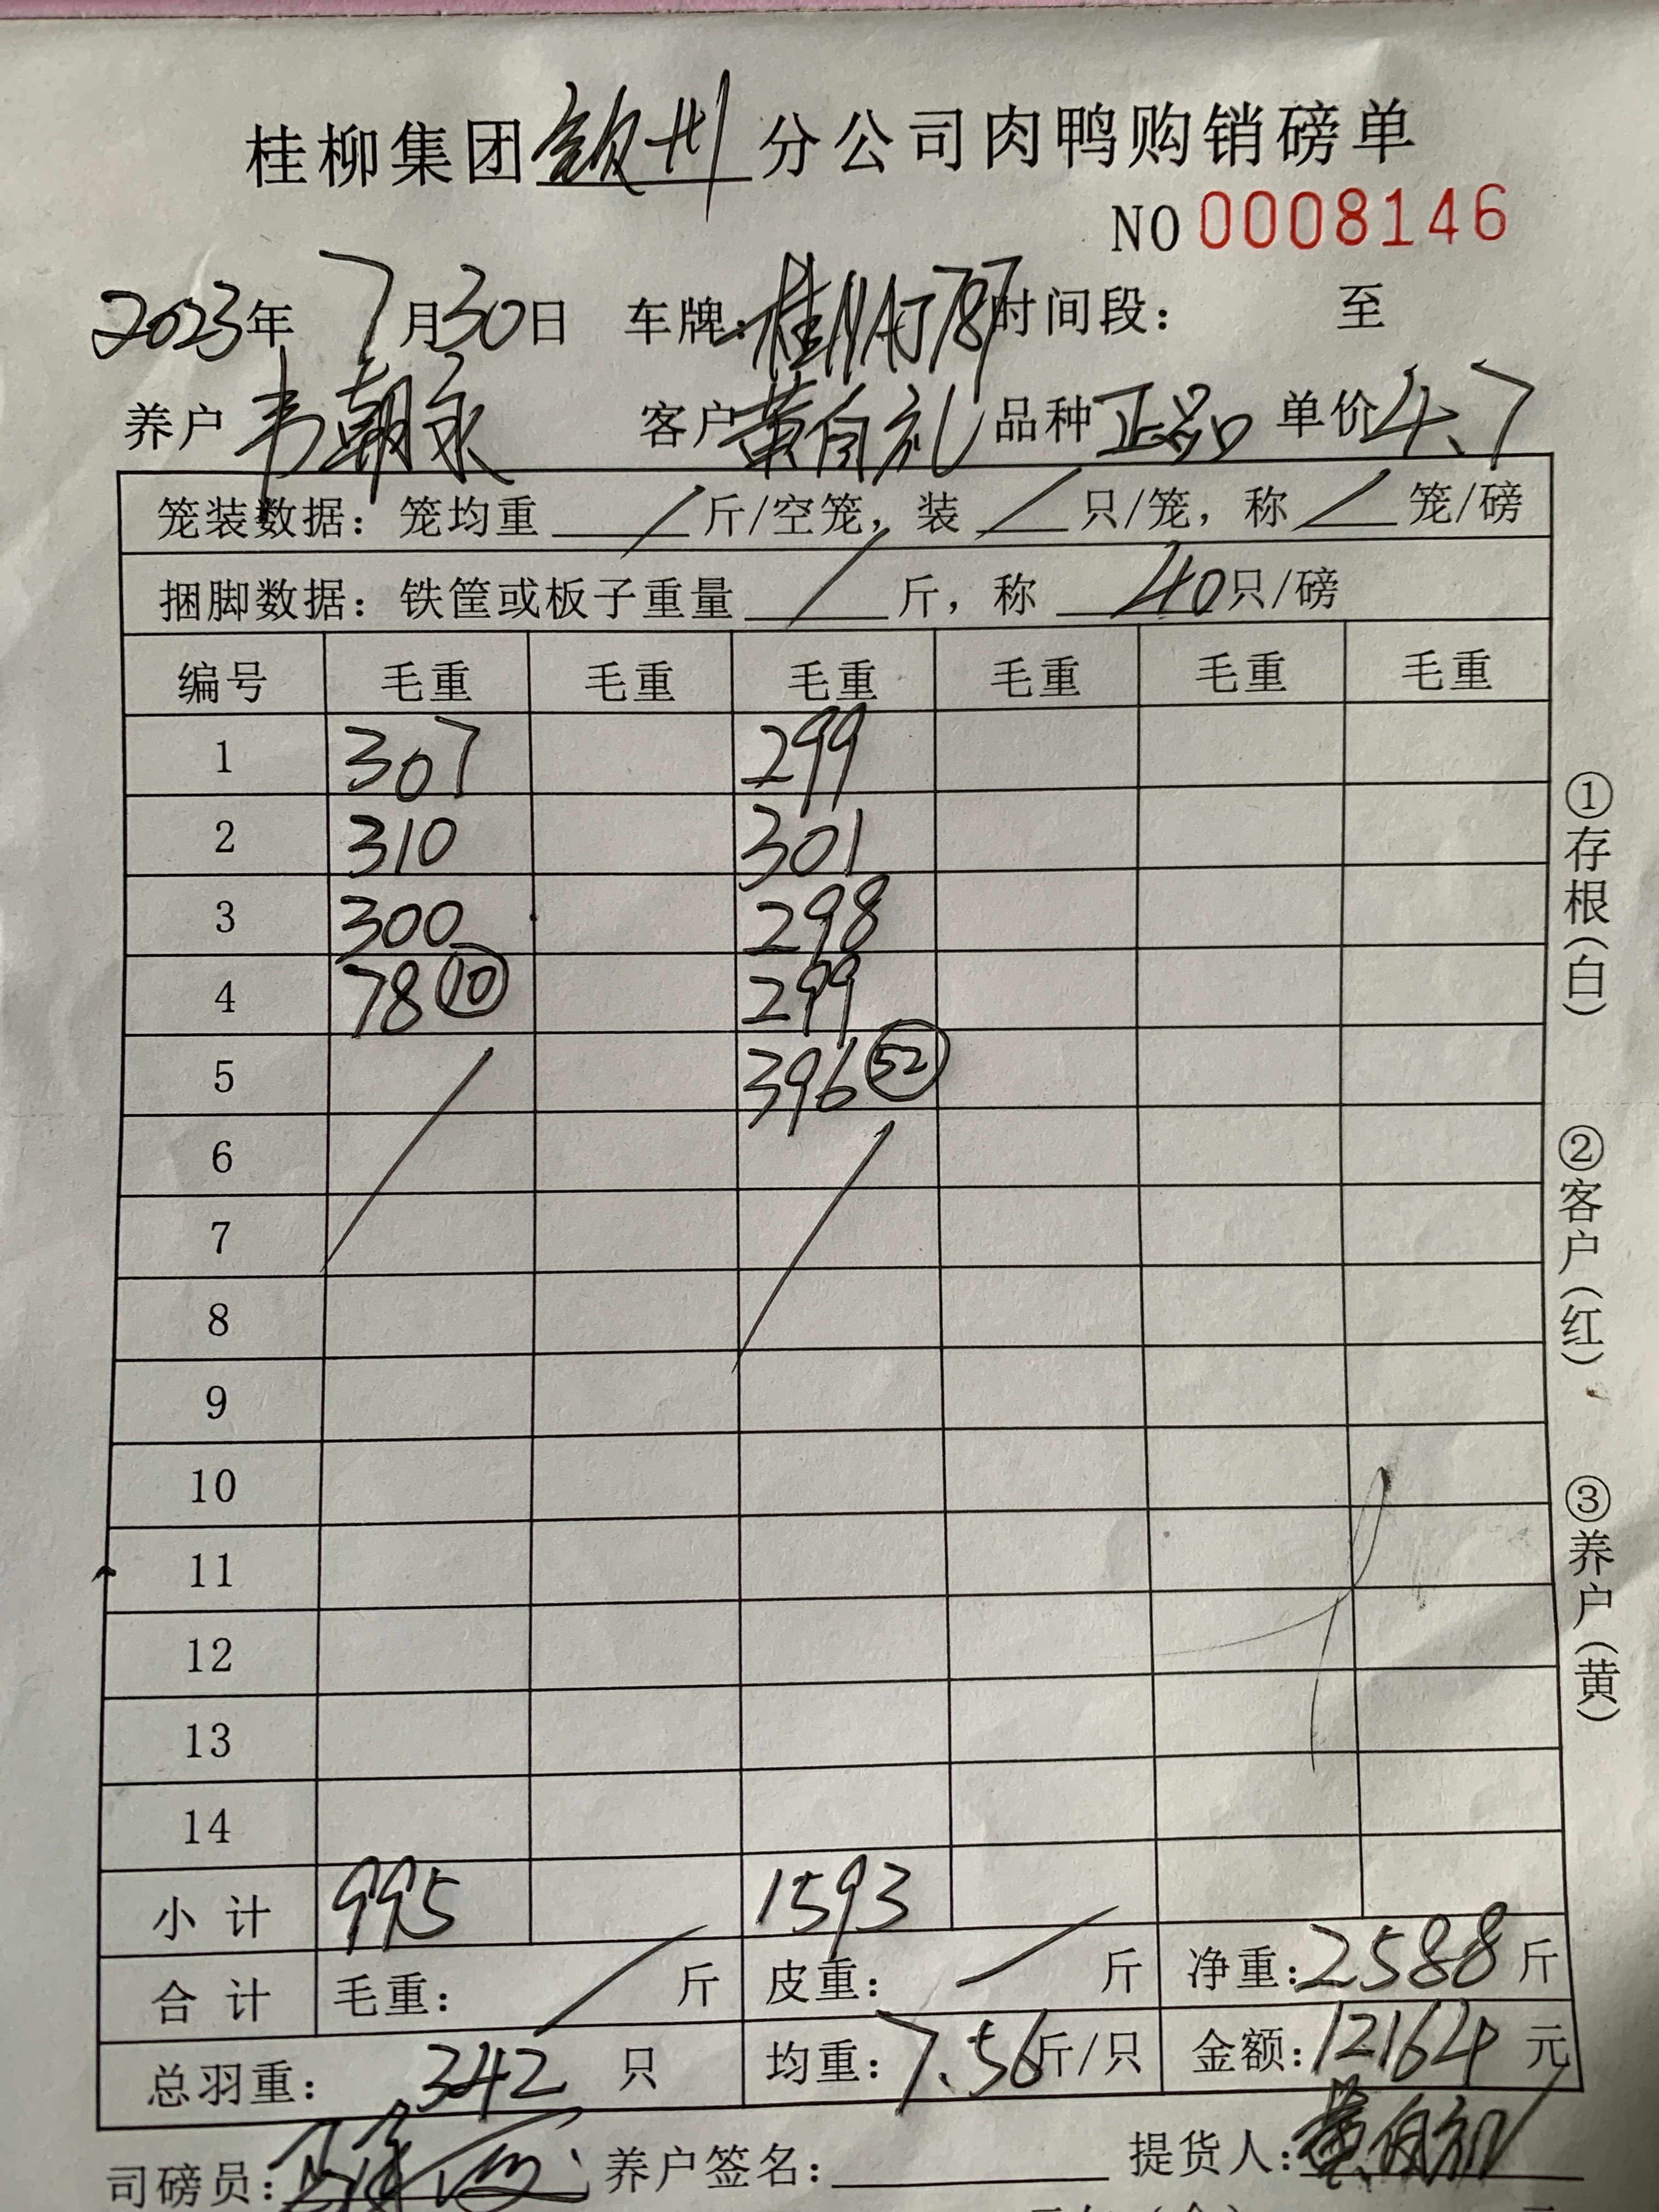 桂柳集团钦州分公司肉鸭购销磅单
NO 0008146
2023年7月30日 车牌:桂NAJ787 时间段: 至
养户 韦朝永 客户 黄自礼 品种 正品 单价 4.7
笼装数据:笼均重 / 斤/空笼,装 / 只/笼,称 / 笼/磅
捆脚数据:铁筐或板子重量 / 斤,称 40只/磅
编号 毛重 毛重 毛重 毛重 毛重 毛重
1 307 299
2 310 301
3 300 298
4 78 ⑩ 299
5 396 52
6
7
8
9
10
11
12
13
14
小计 995 1593
合计 毛重: / 斤 皮重: / 斤 净重:2588斤
总羽重: 342 只 均重:7.56斤/只 金额:12164元
司磅员: 养户签名: 提货人:黄自礼
①存根(白)
②客户(红)
③养户(黄)